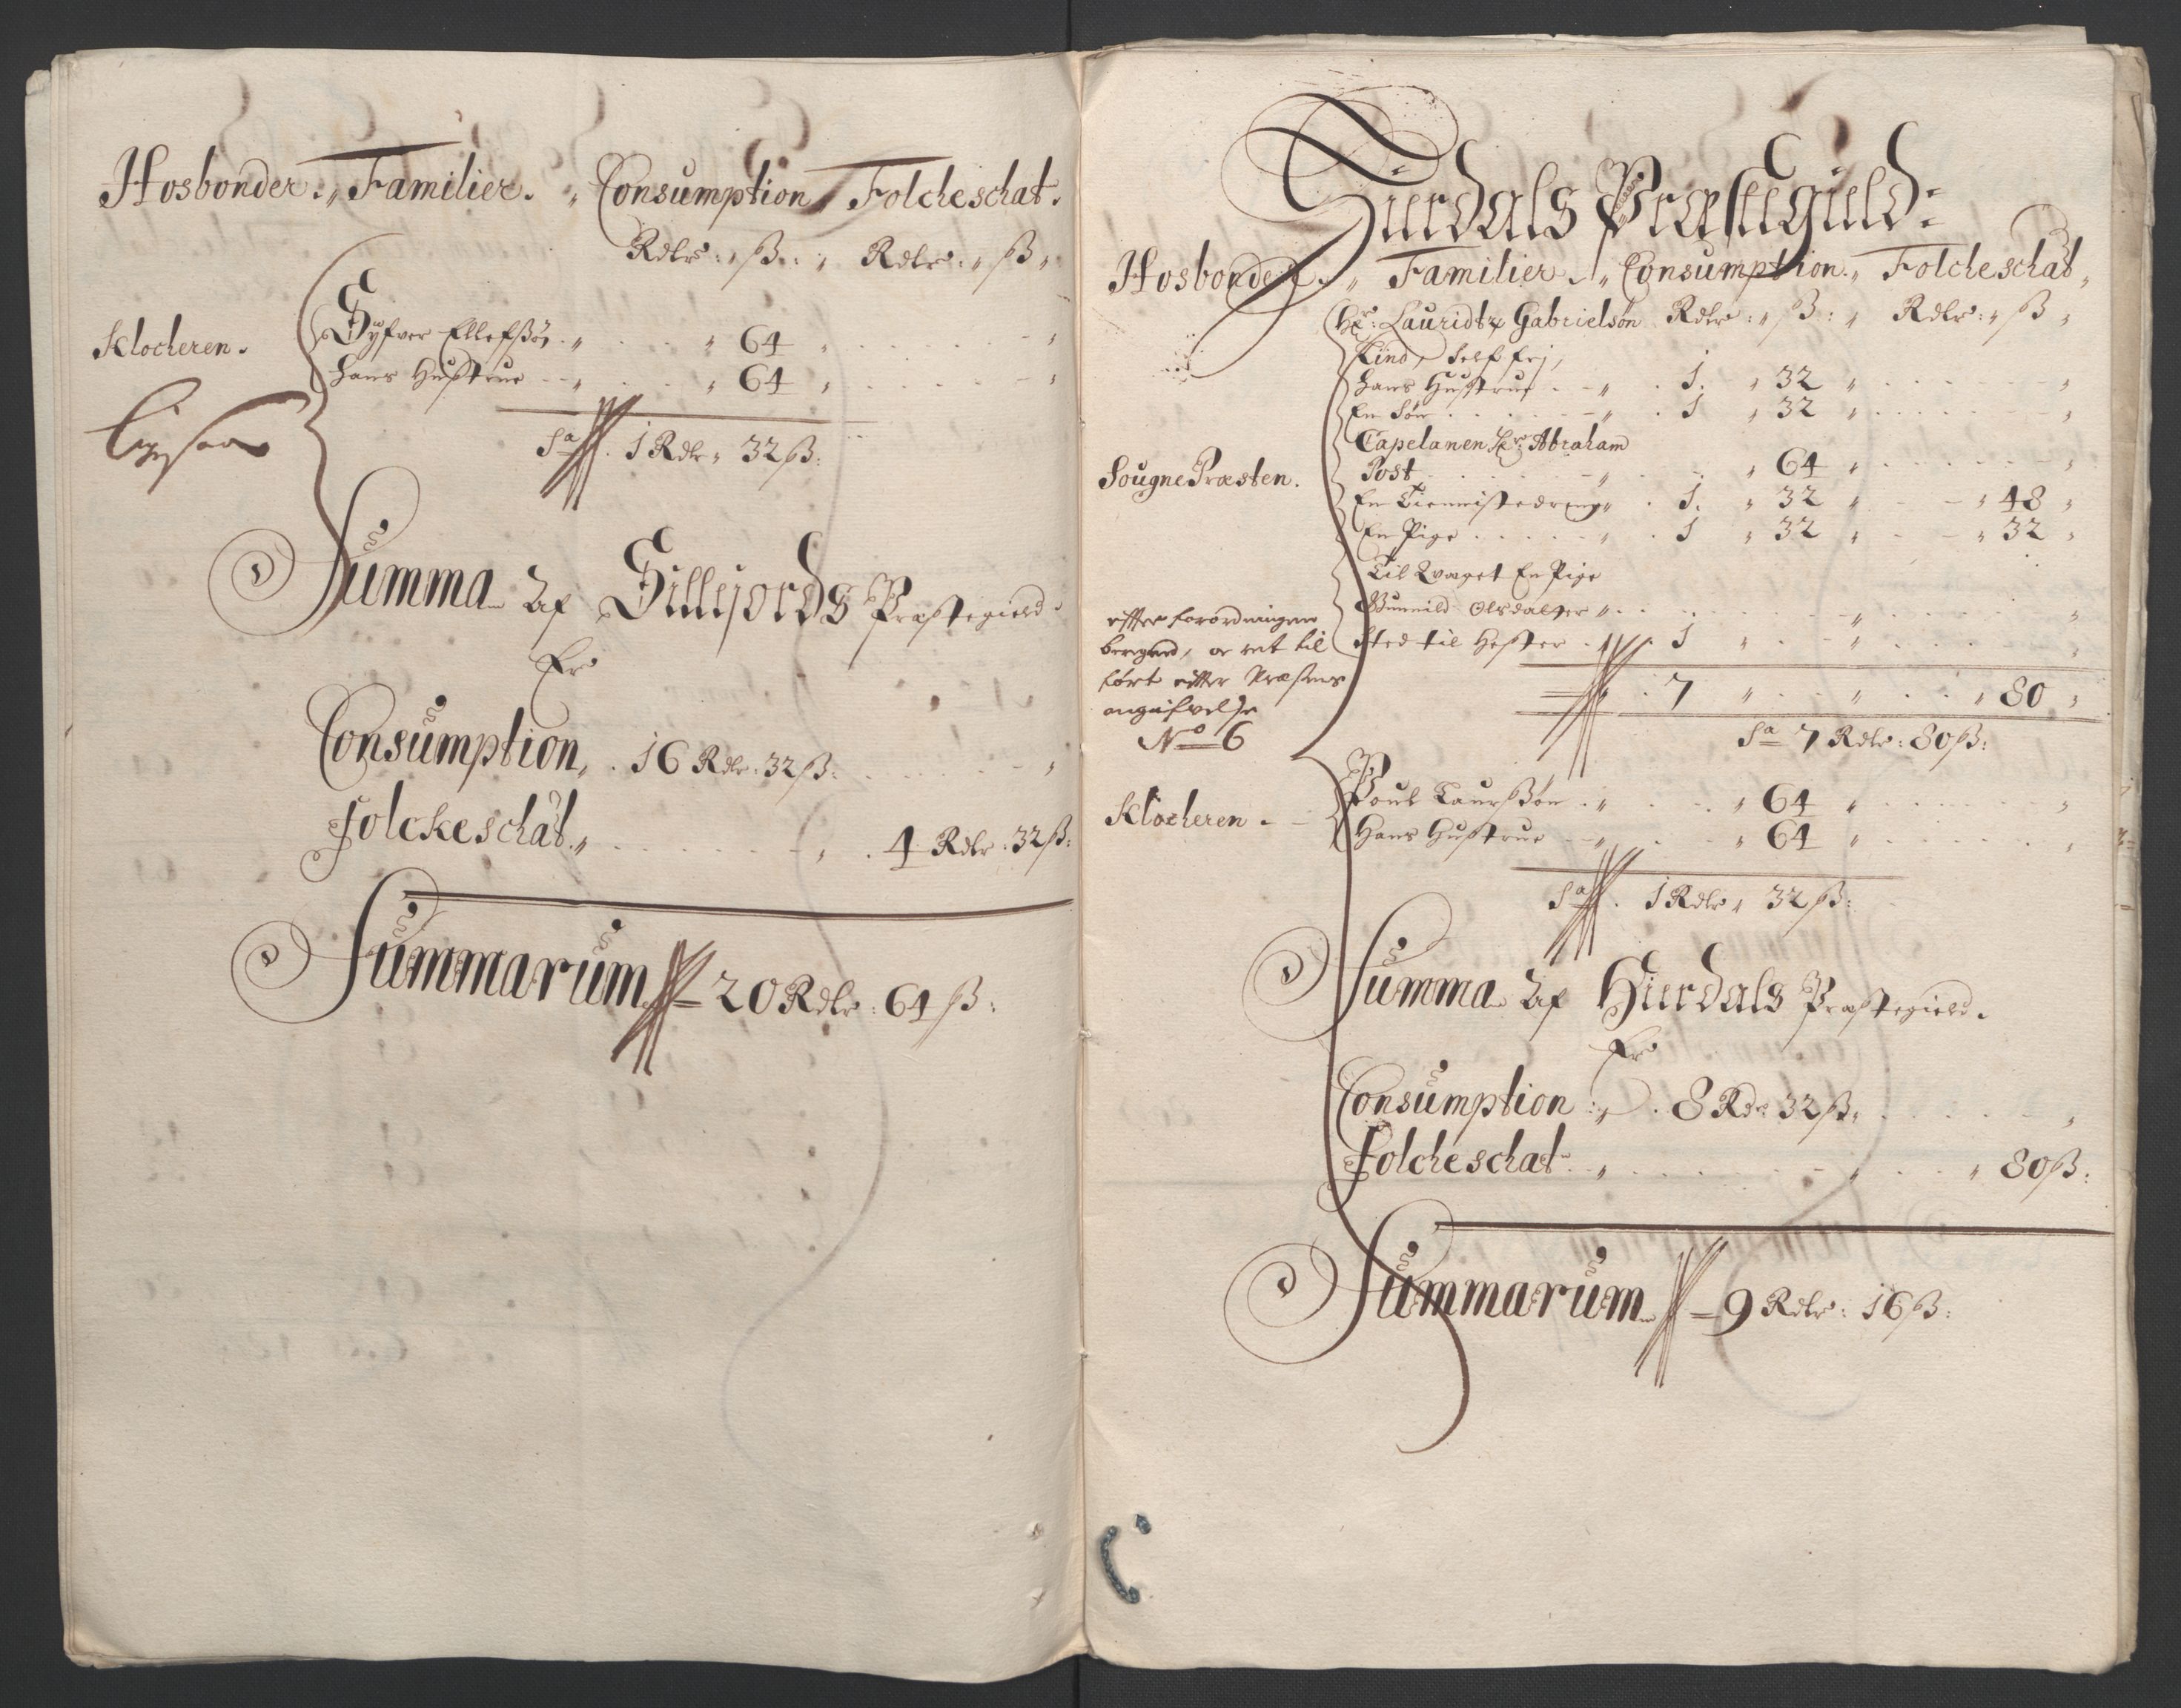 Hosbonder. „ Familier. „ Consumption „ Folckeschat.
Rdlr: „ ß: „ Rdlr: „ ß „
Klockeren. Syfver Ellefsøn „ „ 64 „
Hans Hustrue „ „ 64 „
Sa 1 Rdlr „ 32 ß:
Summa Af Sillejords Præstegield.
Er
Consumption „ 16 Rdlr. 32 ß:
Folckeschat „ 4 Rdlr. 32 ß:
Summarum 20 Rdlr: 64 ß:
Hierdals Præstegield:
Hosbonder. „ Familier. „ Consumption. „ Folckeschat „
Hr: Lauridtz Gabrielsøn Rdlr: „ ß: „ Rdlr: „ ß „
Self fri,
Hans Hustrue „ 1. „ 32 „
En Søn „ 1 „ 32 „
Capelanen Hr: Abraham
SougnePræsten. Post „ „ 64 „
En Tienniste dreng „ 1. „ 32 „ „ 48 „
En Pige „ 1 „ 32 „ „ 32 „
Til Qvæget En Pige
Gunnild Olsdatter „
efter forordningen
beregned, oc ret til Sted til Hester 1 „ „
ført efter Præstens
angifvelse
No 6
7 „ „ 80 „
Sa 7 Rdlr: 80 ß:
Klockeren. Poul Laursøn „ „ 64 „
Hans Hustrue „ „ 64 „
Sa 1 Rdlr „ 32 ß:
Summa Af Hierdals Præstegield.
Er
Consumption „ 8 Rdr 32 ß:
Folckeschat „ „ 80 ß:
Summarum 9 Rdlr: 16 ß: